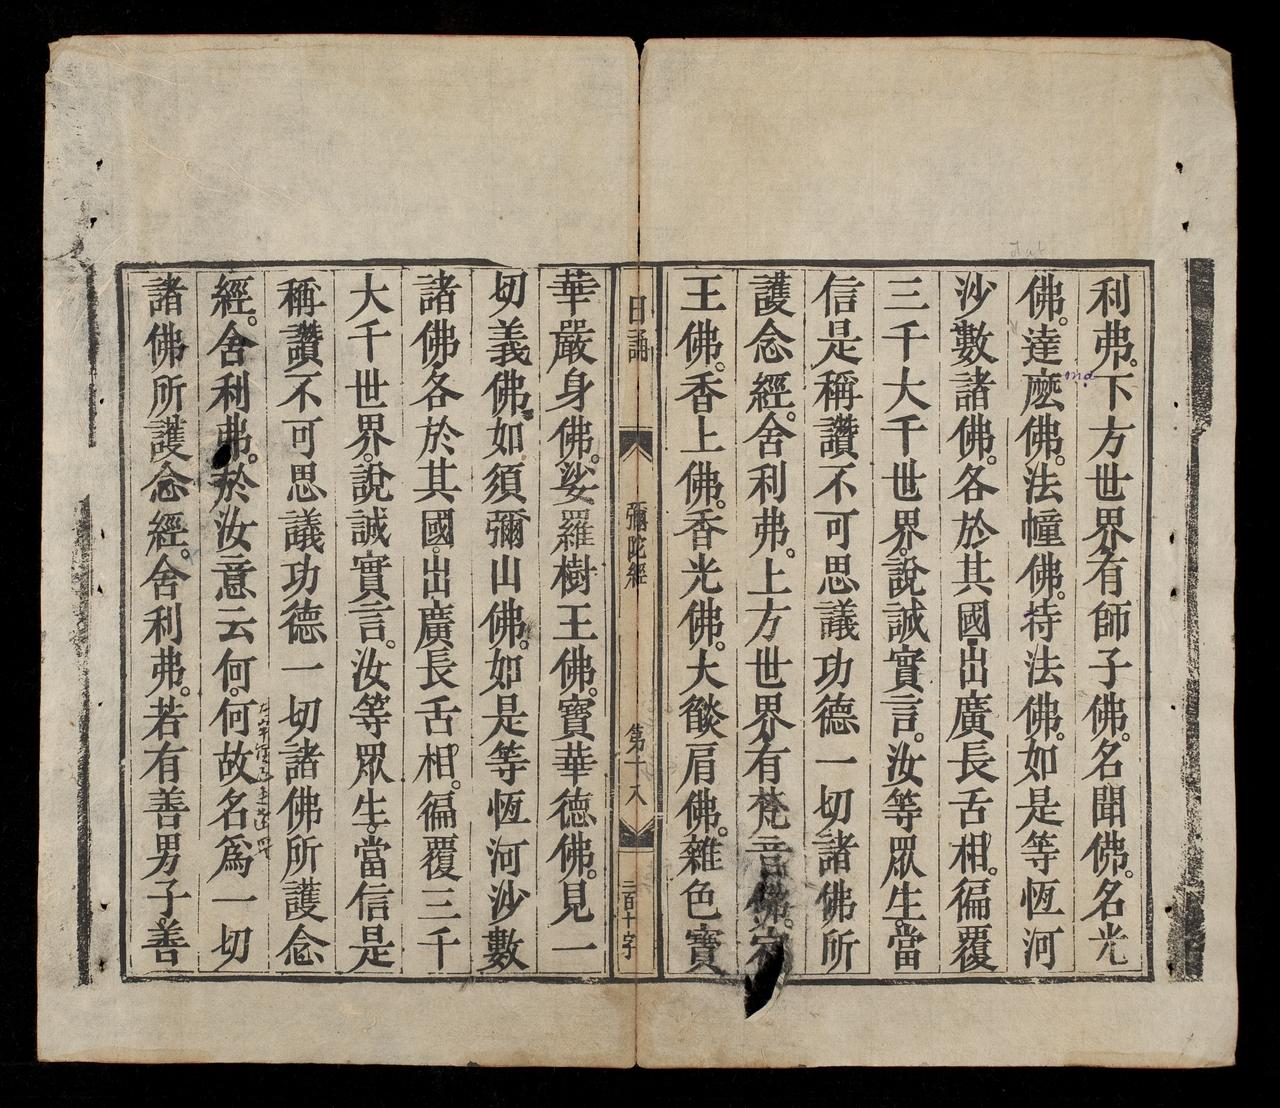 利弗。下方世界。有師子佛。名聞佛。名光
佛。達麽佛。法幢佛。持法佛。如是等恆河
沙數諸佛。各於其國。出廣長舌相。徧覆
三千大千世界。說誠實言。汝等眾生。當
信是稱讚不可思議功德一切諸佛所
護念經。舍利弗。上方世界。有梵音佛。宿
王佛。香上佛。香光佛。大燄肩佛。雜色寶
日誦 彌陀經 第十八 二百十字
華嚴身佛。娑羅樹王佛。寶華德佛。見一
切義佛。如須彌山佛。如是等恆河沙數
諸佛。各於其國。出廣長舌相。徧覆三千
大千世界。說誠實言。汝等眾生。當信是
稱讚不可思議功德一切諸佛所護念
經。舍利弗。於汝意云何。何故名爲一切
諸佛所護念經。舍利弗。若有善男子。善
ma